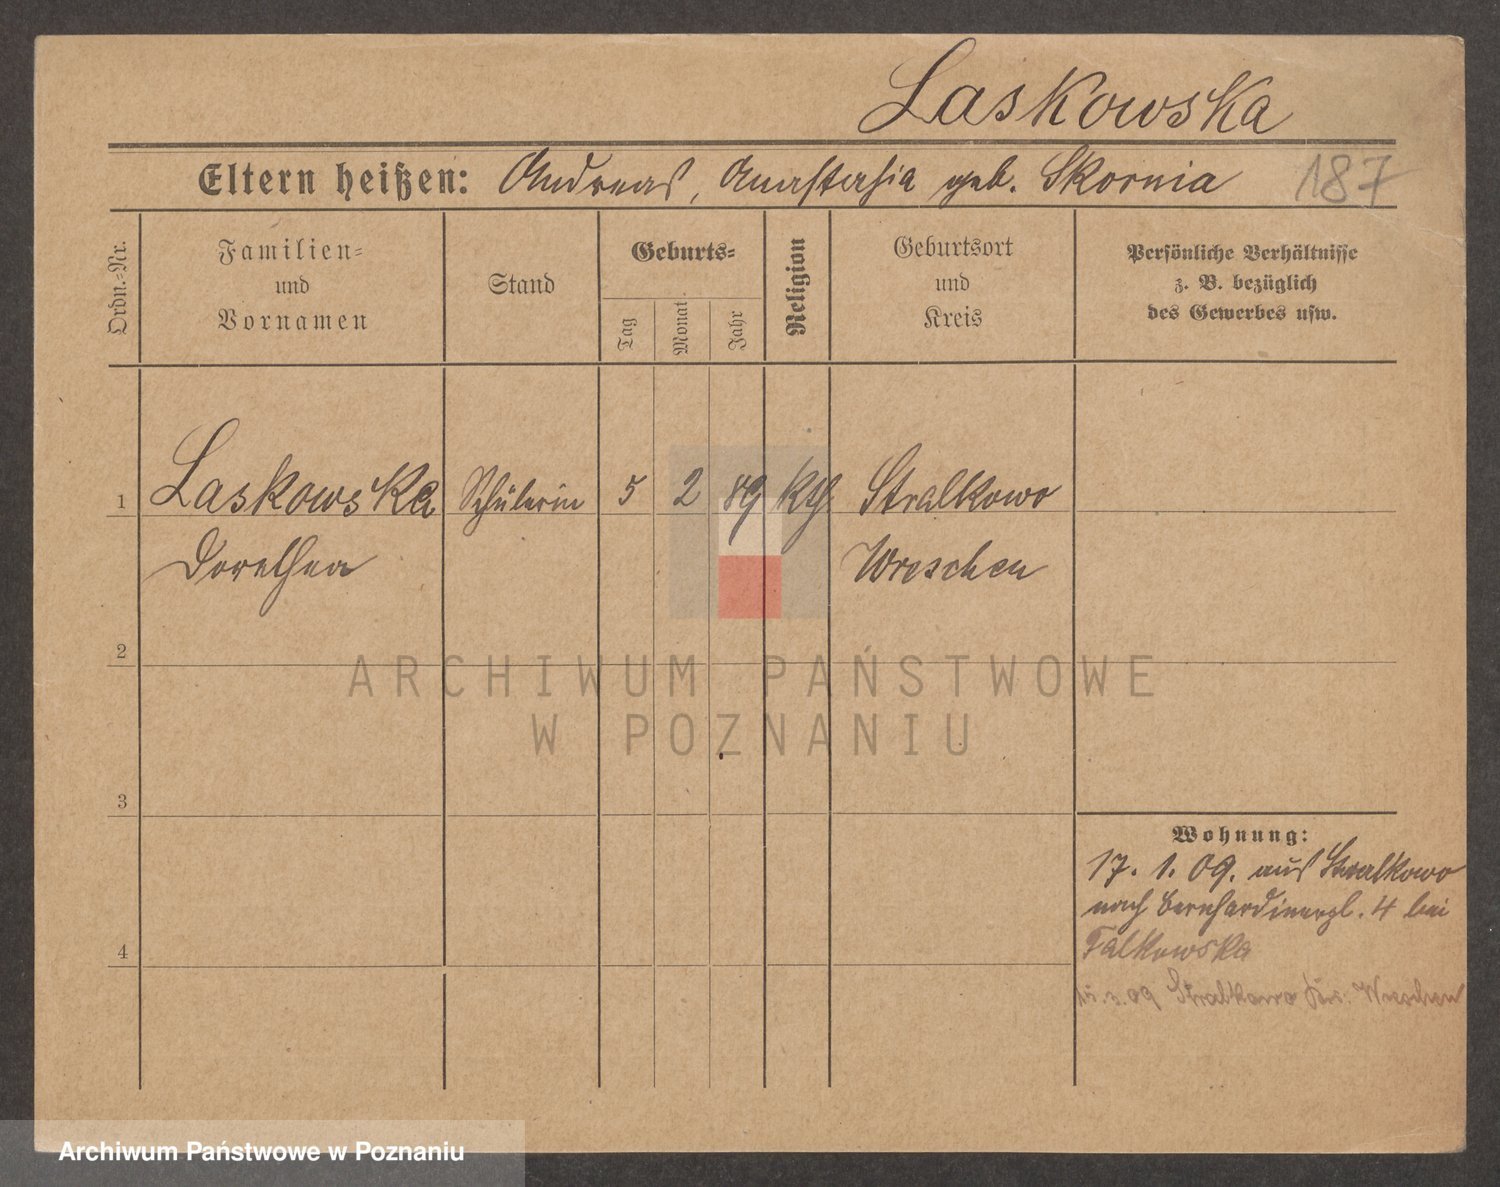 Laskowska
Eltern heißen: Andreas, Anastasia geb. Skornia 187
Ordn.=Nr.
Familien=
und
Vornamen
Stand
Geburts=
Tag
Monat
Jahr
Religion
Geburtsort
und
Kreis
Persönliche Verhältnisse
z. B. bezüglich
des Gewerbes usw.
1 Laskowska Schülerin 5 2 89 kth Stralkowo
Dorothea Wreschen
2
3
4
Wohnung:
17. 1. 09. aus Stralkowo
nach Bernhardinerpl. 4 bei
Falkowska
15.3.09 Stralkowo Krs. Wreschen
ARCHIWUM PAŃSTWOWE
W POZNANIU
Archiwum Państwowe w Poznaniu